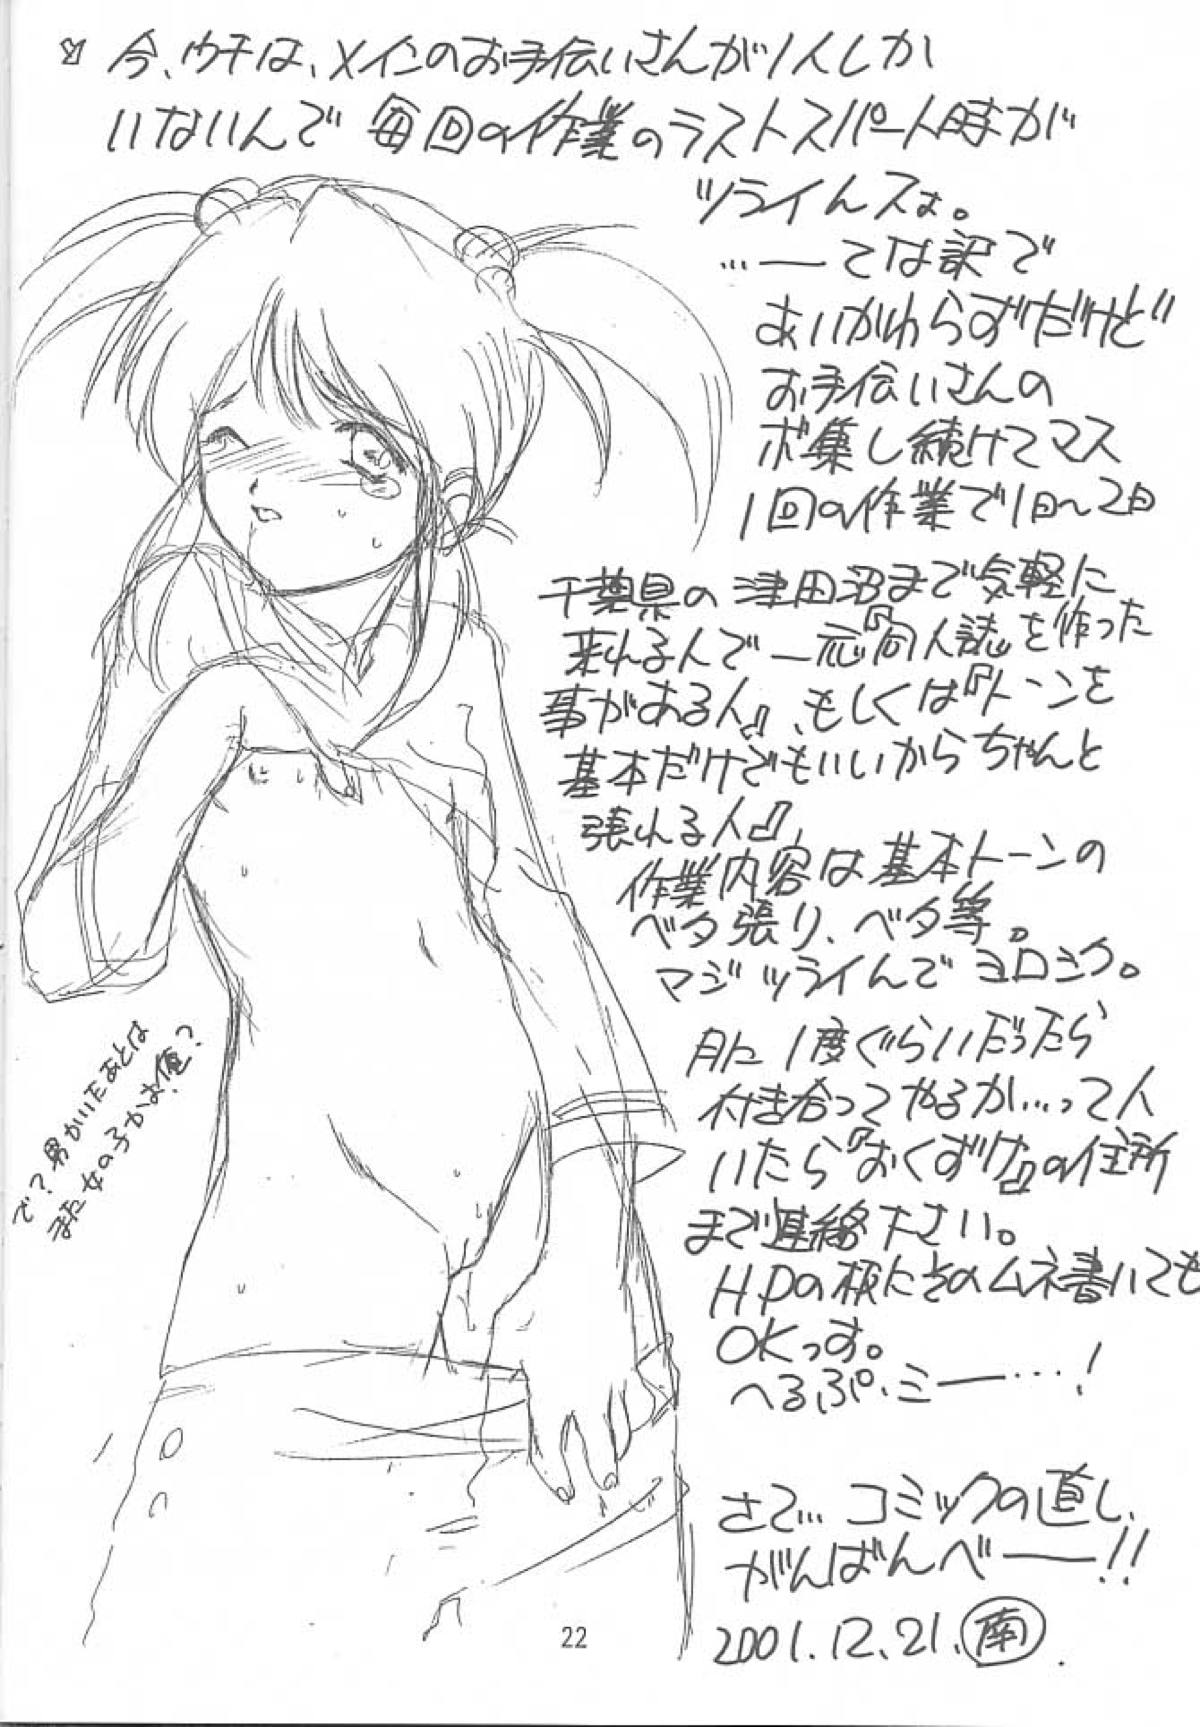 今、ウチは、メインのお手伝いさんが1人しか
いないんで 毎回の作業のラストスパート時が
ツライんスよ。
…――てな訳で
あいかわらずだけど
お手伝いさんの
ボ集し続けてマス
1回の作業で1日〜2日
千葉県の 津田沼まで気軽に
来れる人で 一応『同人誌を作った
事がある人』、もしくは『トーンを
基本だけでもいいから ちゃんと
張れる人』、
作業内容は 基本トーンの
ベタ張り、ベタ等。
マジ ツライんで ヨロシク。
月に 1度ぐらいだったら
付き合ってやるか…って人
いたら『おくずけ』の住所
まで連絡下さい。
HPの板にそのムネ書いても
OKっす。
へるぷ・ミー…！
さて… コミックの直し、
がんばんべ――!!
2001.12.21. 南
で？男かいたあとは
また女の子かよ俺？
22